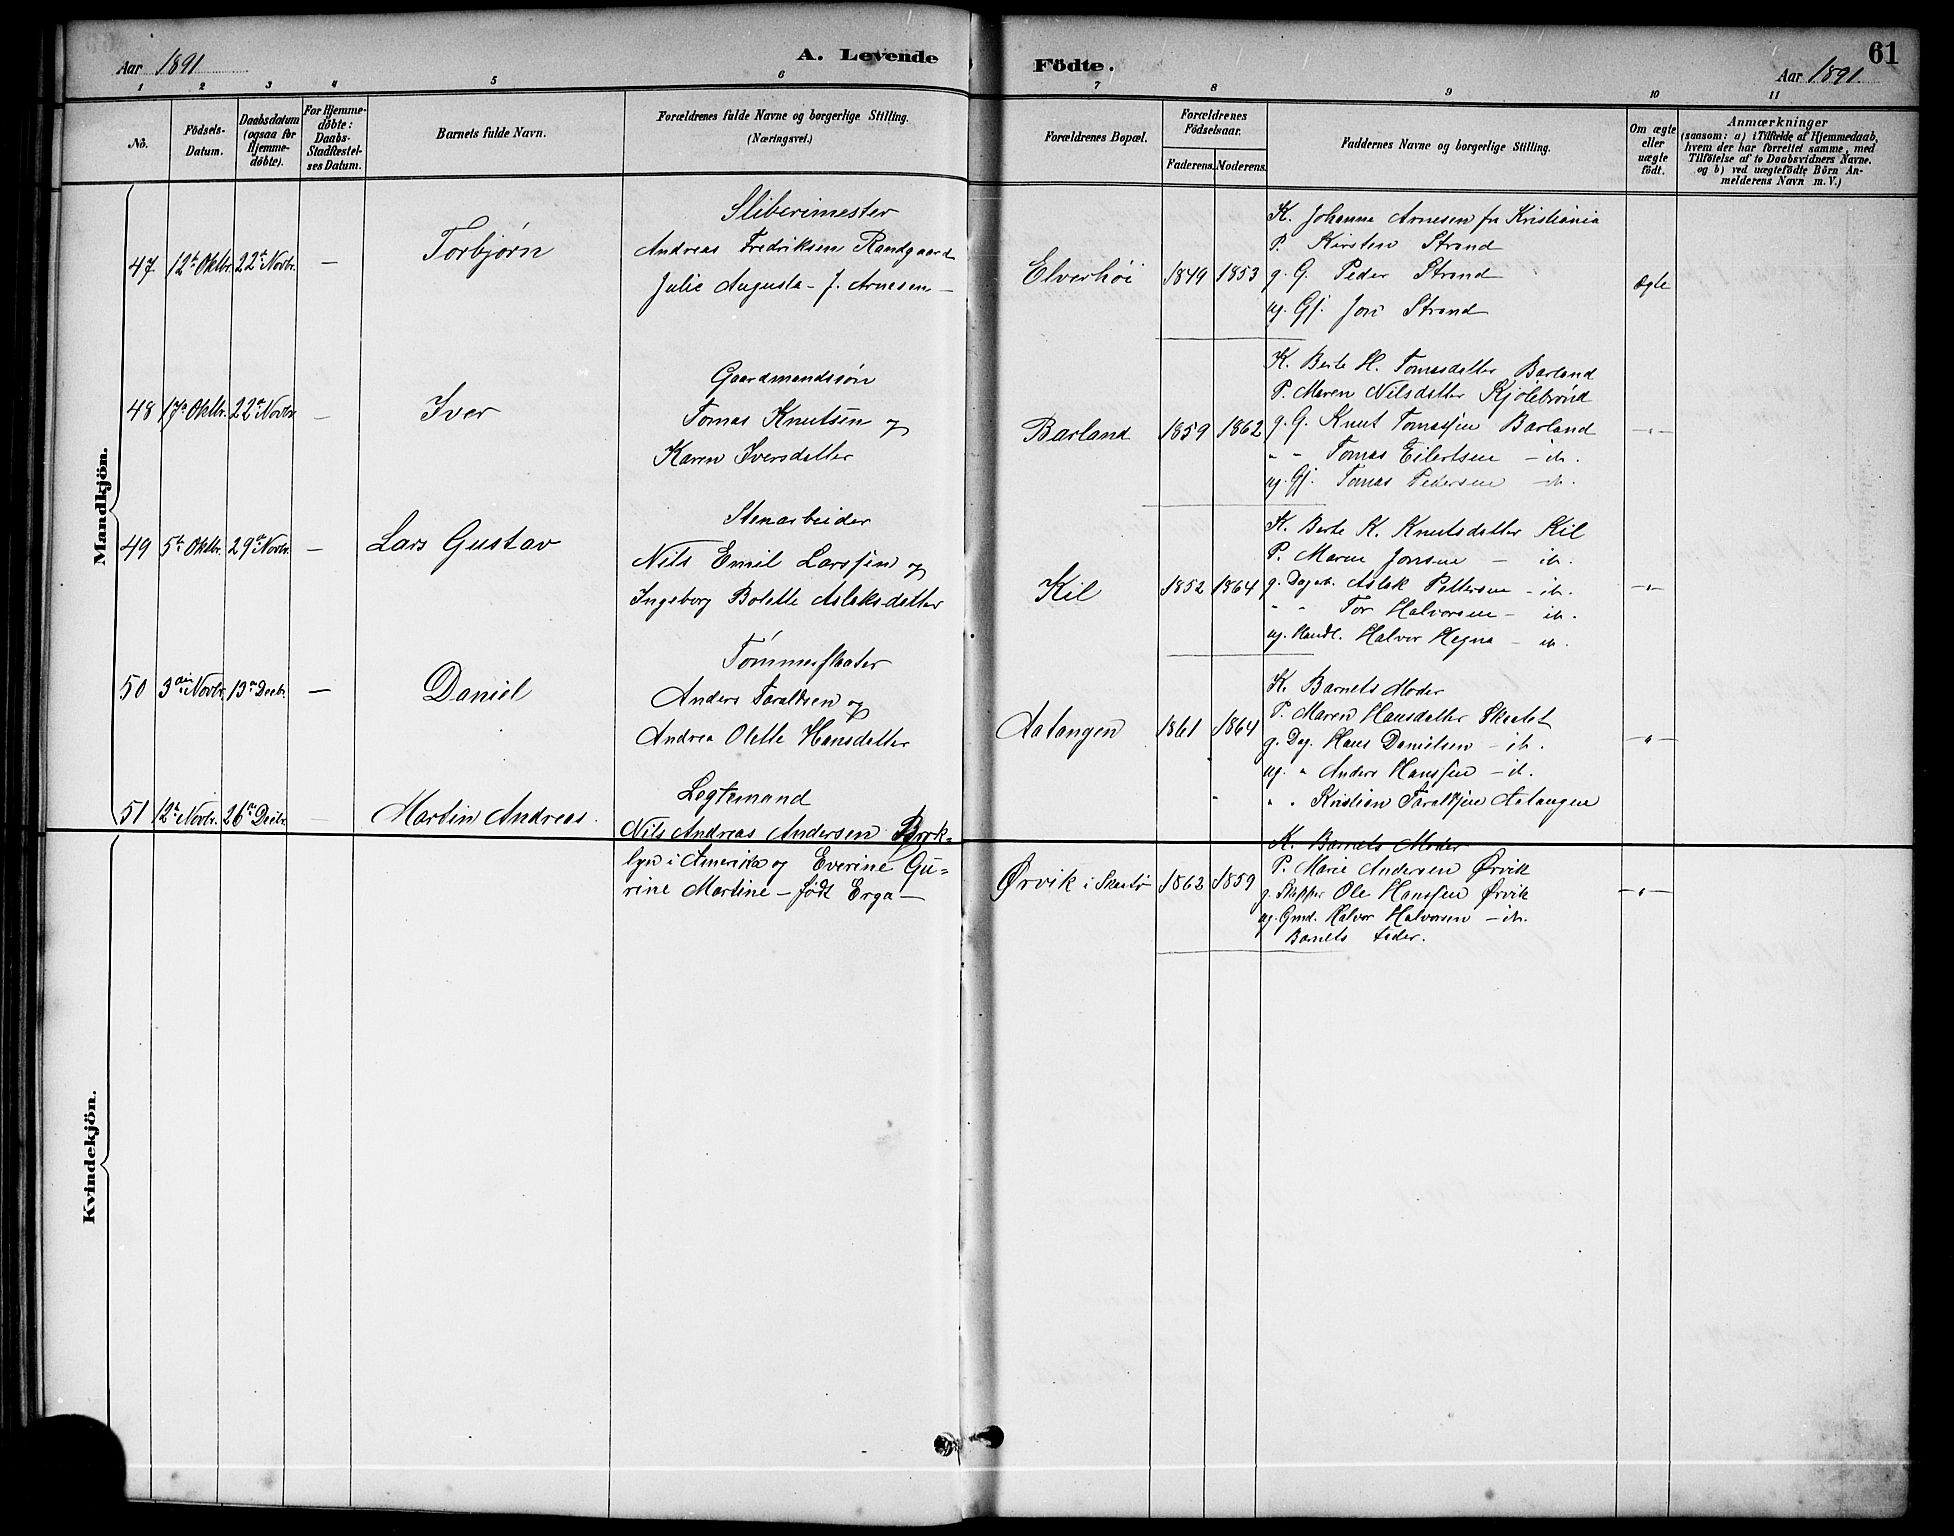 Aar 1891
A. Levende
Födte.
61
Aar 1891.
1 2 3 4 5 6 7 8 9 10 11
No.
Födsels-
Datum.
Daabsdatum
(ogsaa for
Hjemme-
døbte).
For Hjemme-
døbte:
Daabs-
Stadfæstel-
ses Datum.
Barnets fulde Navn.
Forældrenes fulde Navne og borgerlige Stilling.
(Næringsvei.)
Forældrenes Bopæl.
Forældrenes
Födselsaar.
Faderens. Moderens.
Faddernes Navne og borgerlige Stilling.
Om ægte
eller
uægte
födt.
Anmærkninger
(saasom: a) i Tilfælde af Hjemmedaab,
hvem der har forrettet samme, med
Tilföielse af to Daabsvidners Navne.
og b) ved uægtefödte Börn An-
melderens Navn m. V.)
Mandkjön.
47. 12te Oktbr. 22de Novbr. —
Torbjørn
Sliberimester
Andreas Fredriksen Randgaard
Julie Augusta - J. Arnesen -
Elverhöi
1849 1853
K. Johanna Arnesen fra Kristiania
P. Kirsten Strand
g. G. Peder Strand
ug. Gf. Jon Strand
Ægte
48 17de Oktbr. 22de Novbr. —
Iver
Gaardmandssøn
Tomas Knutsen og
Karen Iversdatter
Barland
1859 1862
K. Berte H. Tomasdatter Barland
P. Maren Nilsdatter Kjølebrønd
g. G. Knut Tomassen Barland
" - Tomas Eilertsen - ib.
ug. Gf. Tomas Pedersen - ib.
—"—
49 5te Oktbr. 29de Novbr. —
Lars Gustav
Stenarbeider
Nils Emil Larssen og
Ingeborg Bolette Aslaksdatter
Kil
1852 1864
K. Berte K. Knutsdatter Kil
P. Maren Jonsen - ib.
g. Dagarb. Aslak Pettersen - ib.
" - Tor Halvorsen - ib.
ug. Handl. Halvor Hegna - ib.
—"—
50 3die Novbr. 13de Decbr. —
Daniel
Tømmerfløter
Anders Taraldsen og
Andrea Olette Hansdatter
Aatangen
1861 1864
K. Barnets Moder
P. Maren Hansdatter
g. Dag. Hans Danielsen - ib.
ug. " Anders Hanssen - ib.
" " Kristian Taraldsen Aatangen
—"—
51 12te Novbr. 26de Decbr.
Martin Andreas.
Legtemand
Nils Andreas Andersen Brok-
lyn i Amerika og Everine Gu-
rine Martine - født Erga -
Ørvik i Skaatø
1862 1859
K. Barnets Moder
P. Marie Andersen Ørvik
g. Skipper Ole Hanssen Ørvik
ug. Gmd. Halvor Halvorsen - ib.
Barnets Fader.
—"—
Kvindekjön.